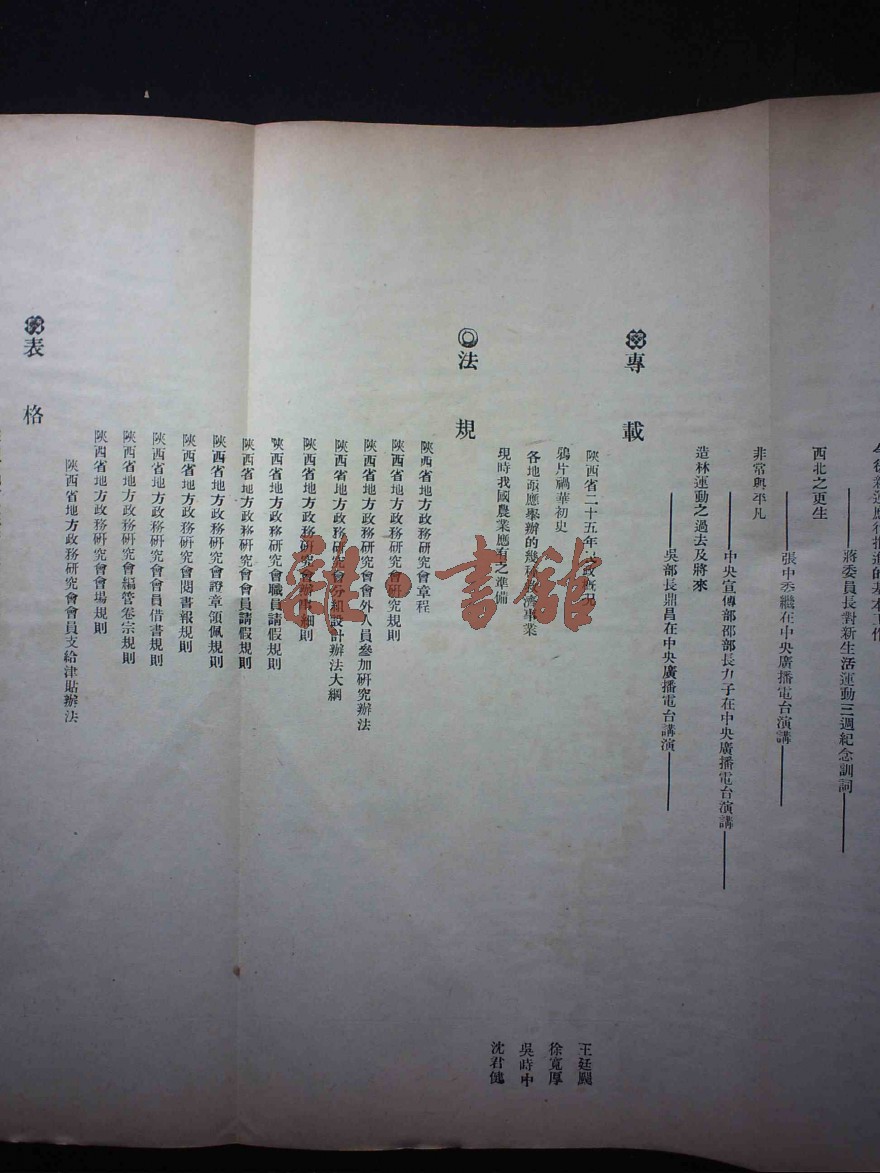 今後新運應行推進的基本工作
——蔣委員長對新生活運動三週紀念訓詞——
西北之更生
——張中委繼在中央廣播電台演講——
非常與平凡
——中央宣傳部邵部長力子在中央廣播電台演講——
造林運動之過去及將來
——吳部長鼎昌在中央廣播電台講演——
專載
陝西省二十五年
王廷颺
鴉片禍華初史
徐寬厚
各地亟應舉辦的幾種救濟事業
吳時中
現時我國農業應有之準備
沈君健
法規
陝西省地方政務研究會章程
陝西省地方政務研究會研究規則
陝西省地方政務研究會會外人員參加研究辦法
陝西省地方政務研究會分組設計辦法大綱
陝西省地方政務研究會辦事細則
陝西省地方政務研究會職員請假規則
陝西省地方政務研究會會員請假規則
陝西省地方政務研究會證章領佩規則
陝西省地方政務研究會閱書報規則
陝西省地方政務研究會會員借書規則
陝西省地方政務研究會編管卷宗規則
陝西省地方政務研究會會場規則
陝西省地方政務研究會會員支給津貼辦法
表格
雜·書館